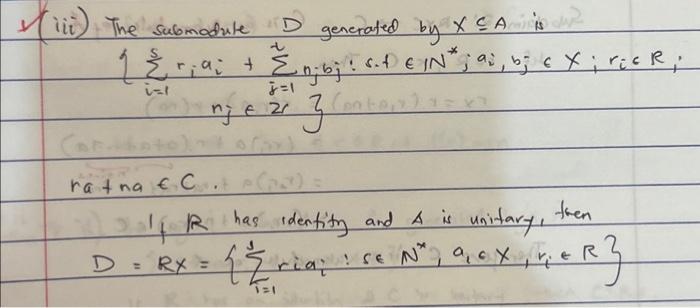 ✓(iii) The submodule D generated by X ⊆ A is
{ ∑_{i=1}^{s} r_i a_i + ∑_{j=1}^{t} n_j b_j : s,t ∈ IN^*; a_i, b_j ∈ X; r_i ∈ R;
n_j ∈ Z }
ra + na ∈ C.
If R has identity and A is unitary, then
D = RX = { ∑_{i=1}^{s} r_i a_i : s ∈ N^*, a_i ∈ X, r_i ∈ R }